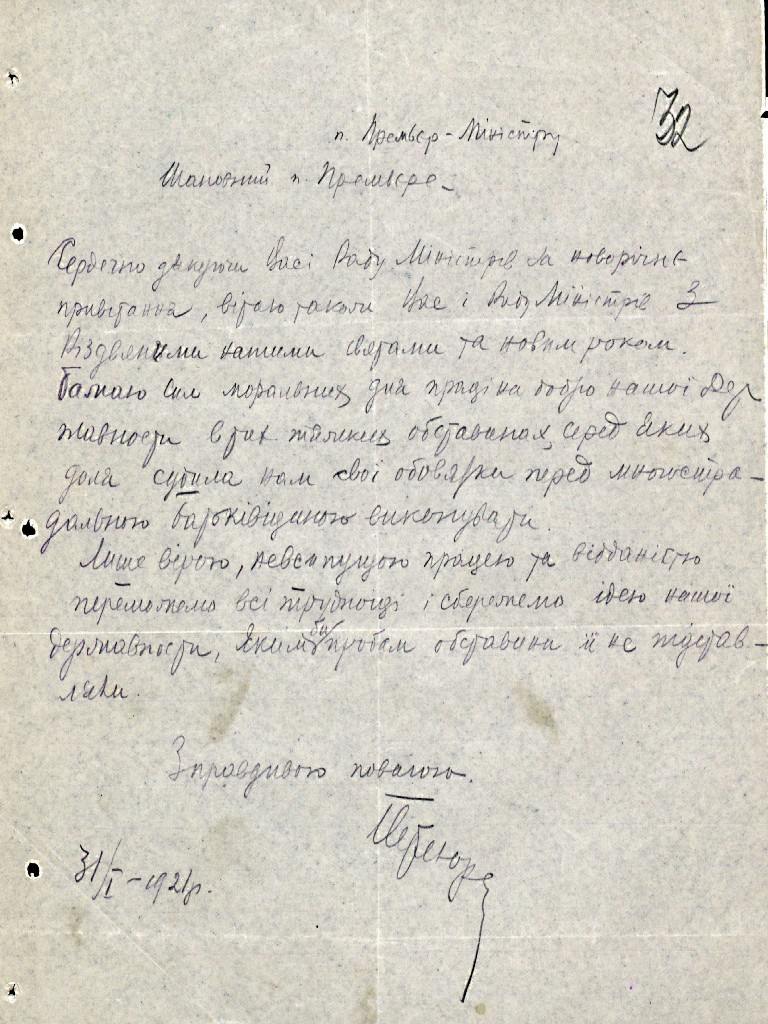 32
п. Премьєр-Міністру
Шановний п. Премьєре_
Сердечно дякуючи Вас і Раду Міністрів за новорічне
привітання, вітаю також Вас і Раду Міністрів З
Різдвяними нашими святами та новим роком.
Бажаю сил моральних для праці на добро нашої Дер
жавности в тих тяжких обставинах, серед яких
доля судила нам свої обовязки перед многостра-
дальною Батьківщиною виконувати.
Лише вірою, невсипущою працею та відданістю
переможемо всі труднощі і збережемо ідею нашої
державности, яким би пробам обставини її не підстав-
ляли.
З правдивою повагою.
Петлюра
31/I – 1921 р.